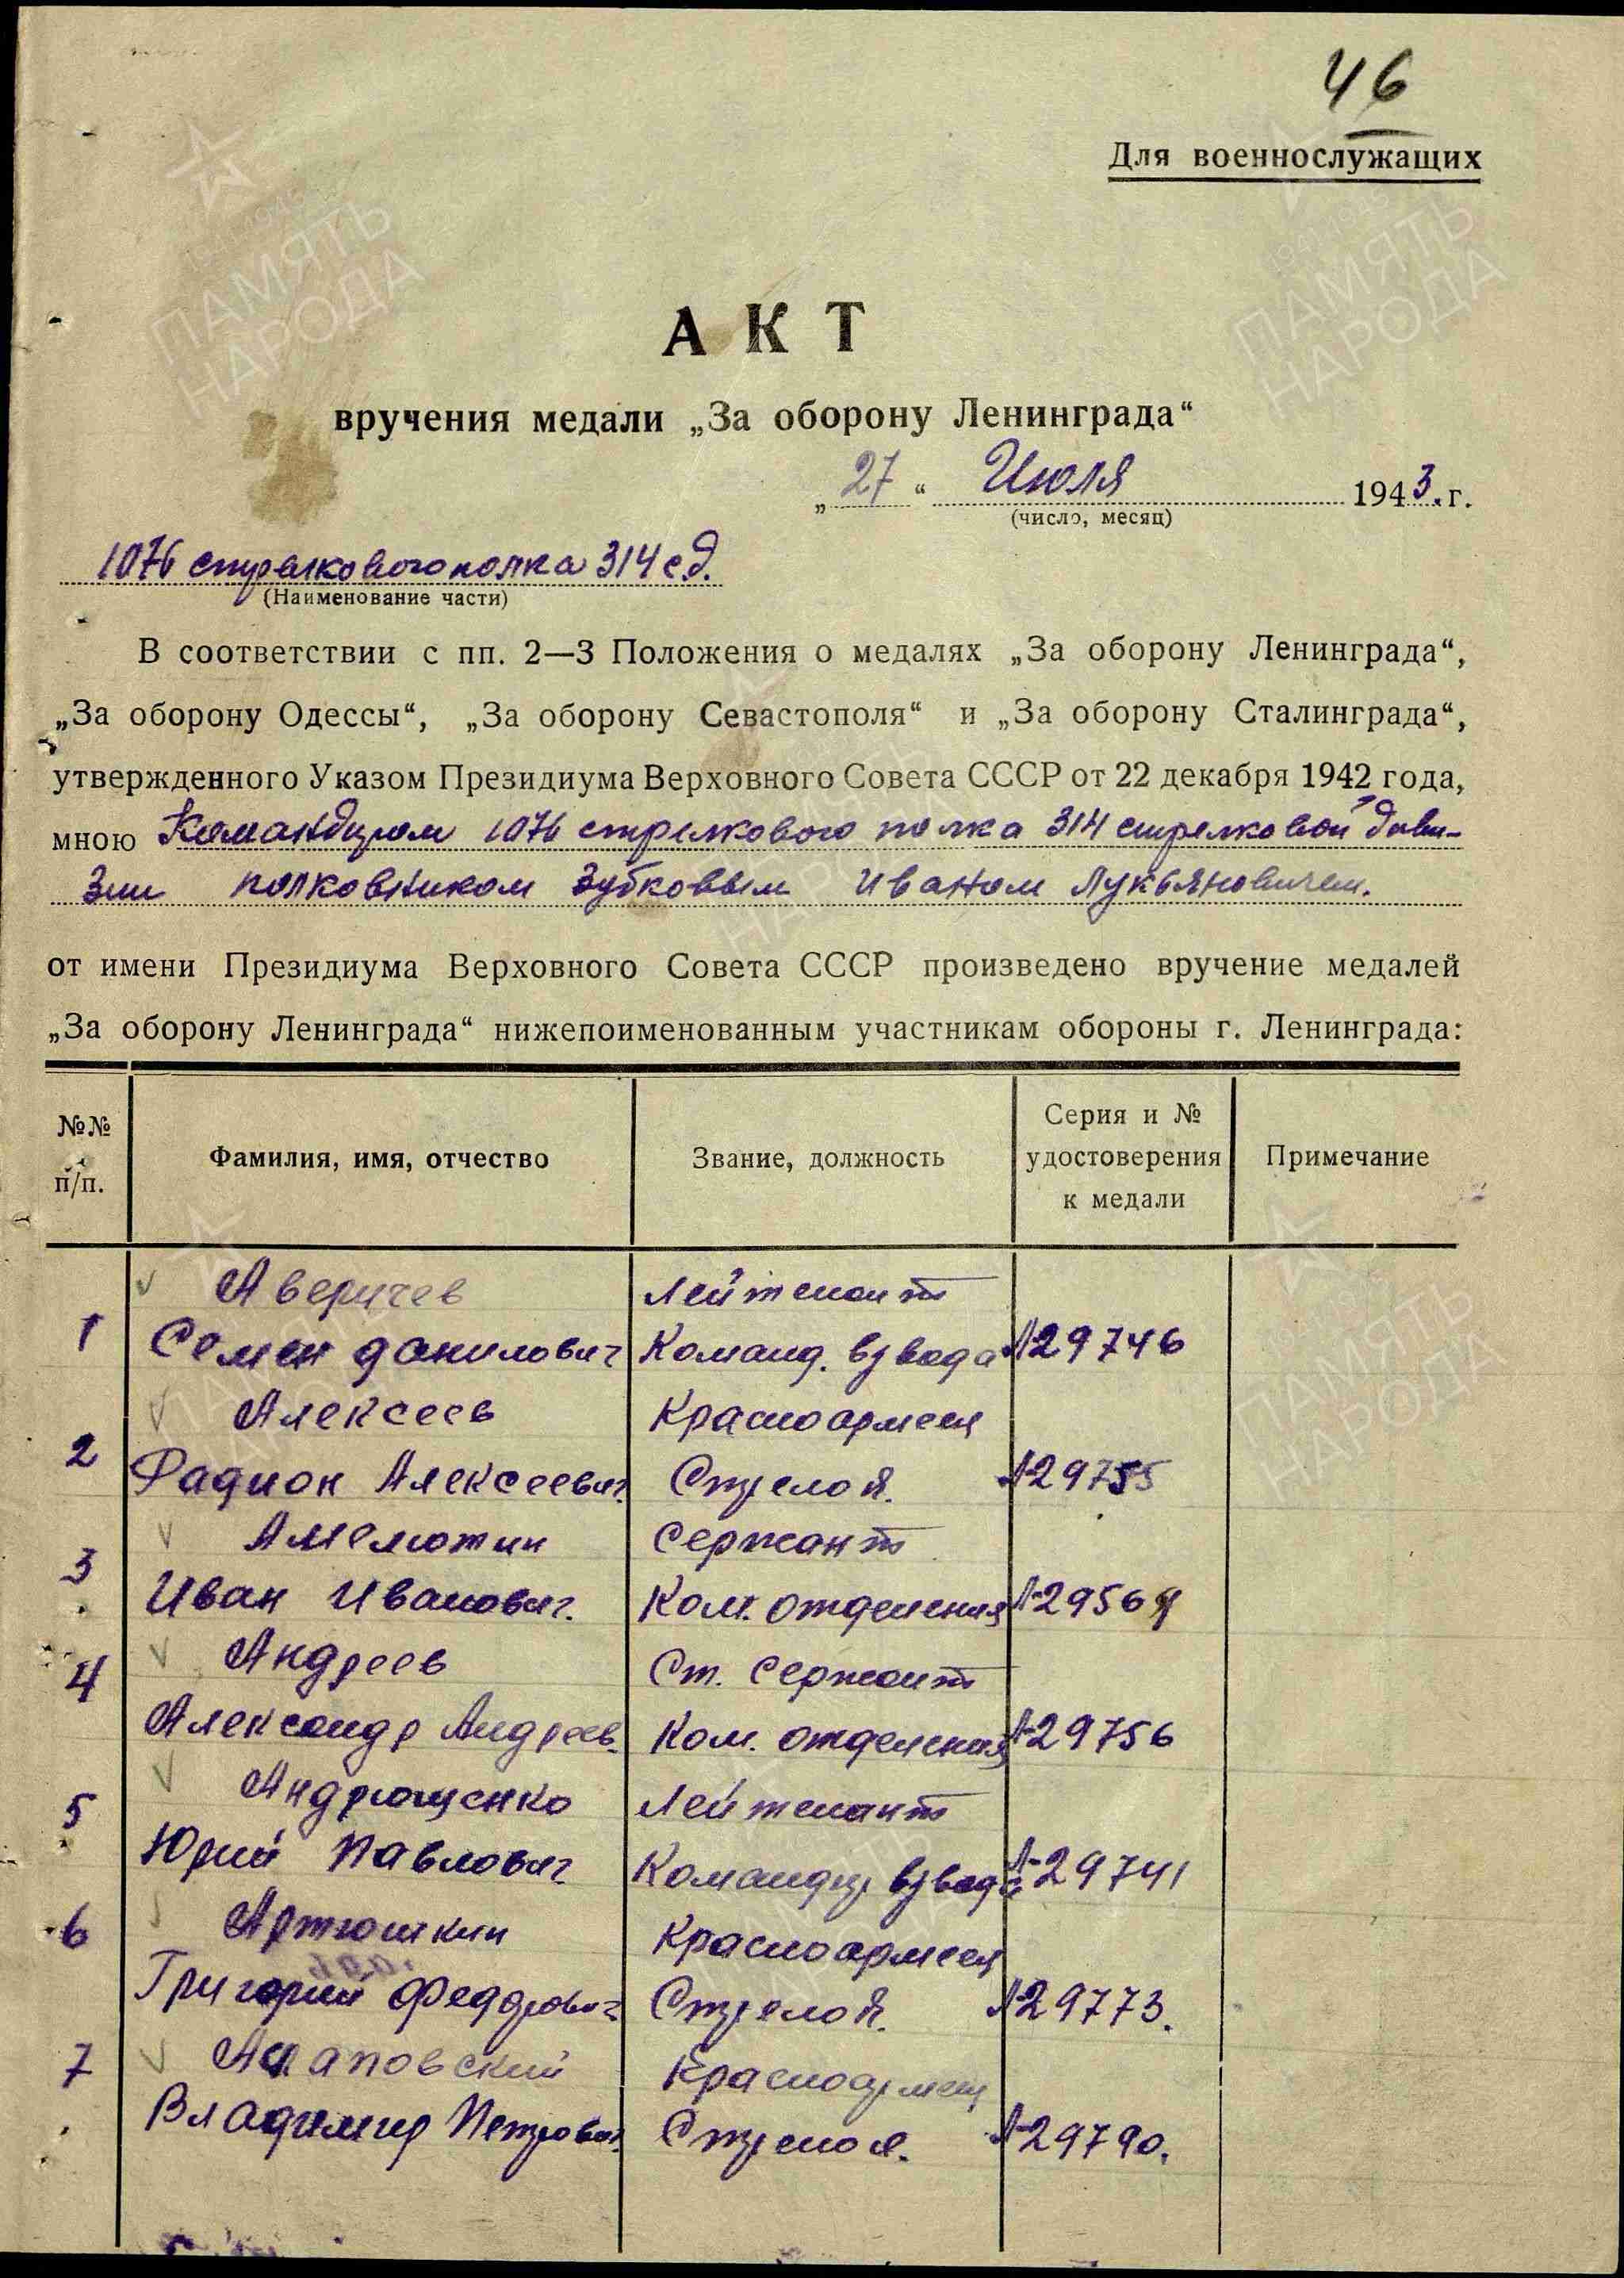 46
Для военнослужащих
АКТ
вручения медали „За оборону Ленинграда“
„27“ Июля 1943. г.
(число, месяц)
1076 стрелкового полка 314 с.д.
(Наименование части)
В соответствии с пп. 2—3 Положения о медалях „За оборону Ленинграда“,
„За оборону Одессы“, „За оборону Севастополя“ и „За оборону Сталинграда“,
утвержденного Указом Президиума Верховного Совета СССР от 22 декабря 1942 года,
мною Командиром 1076 стрелкового полка 314 стрелковой диви-
зии полковником Зубковым Иваном Лукьяновичем.
от имени Президиума Верховного Совета СССР произведено вручение медалей
„За оборону Ленинграда“ нижепоименованным участникам обороны г. Ленинграда:
№№ п/п. Фамилия, имя, отчество Звание, должность Серия и № удостоверения к медали Примечание
Аверичев Лейтенант
1 Семен Данилович Команд. взвода Л-29746
Алексеев Красноармеец
2 Фадион Алексеевич. Стрелок. Л-29755
Амелютин Сержант
3 Иван Иванович. Ком. отделения Л-29569
Андреев Ст. Сержант
4 Александр Андреев. Ком. отделения Л-29756
Андрющенко Лейтенант
5 Юрий Павлович Командир взвода Л-29741
6 Артюшкин Красноармеец
Григорий Федорович Стрелок. Л-29773.
7 Красноармеец
Владимир Петрович. Стрелок. Л-29790.
ПАМЯТЬ НАРОДА
1941-1945